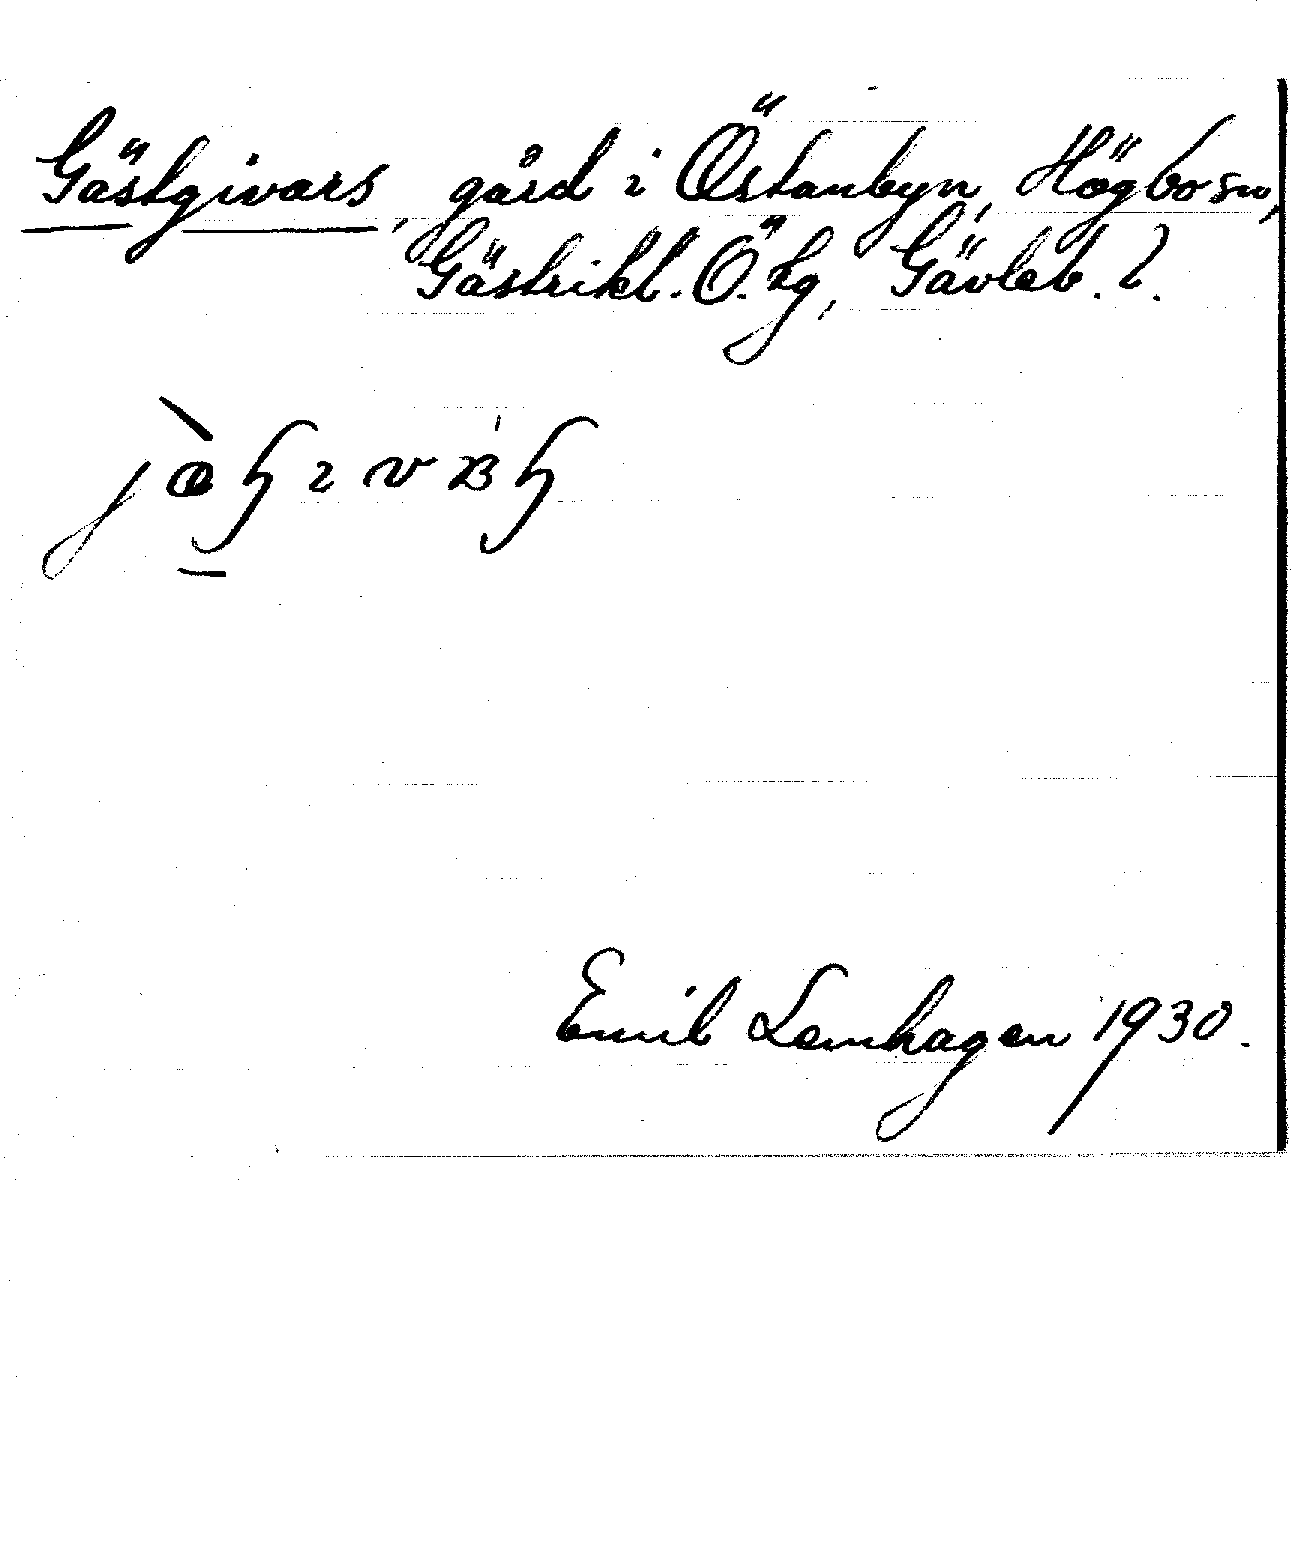 Gästgivars, gård i Östanbyn, Högbo sn,
Gästrikl. Ö. hg, Gävleb. l.
Emil Lemhagen 1930.